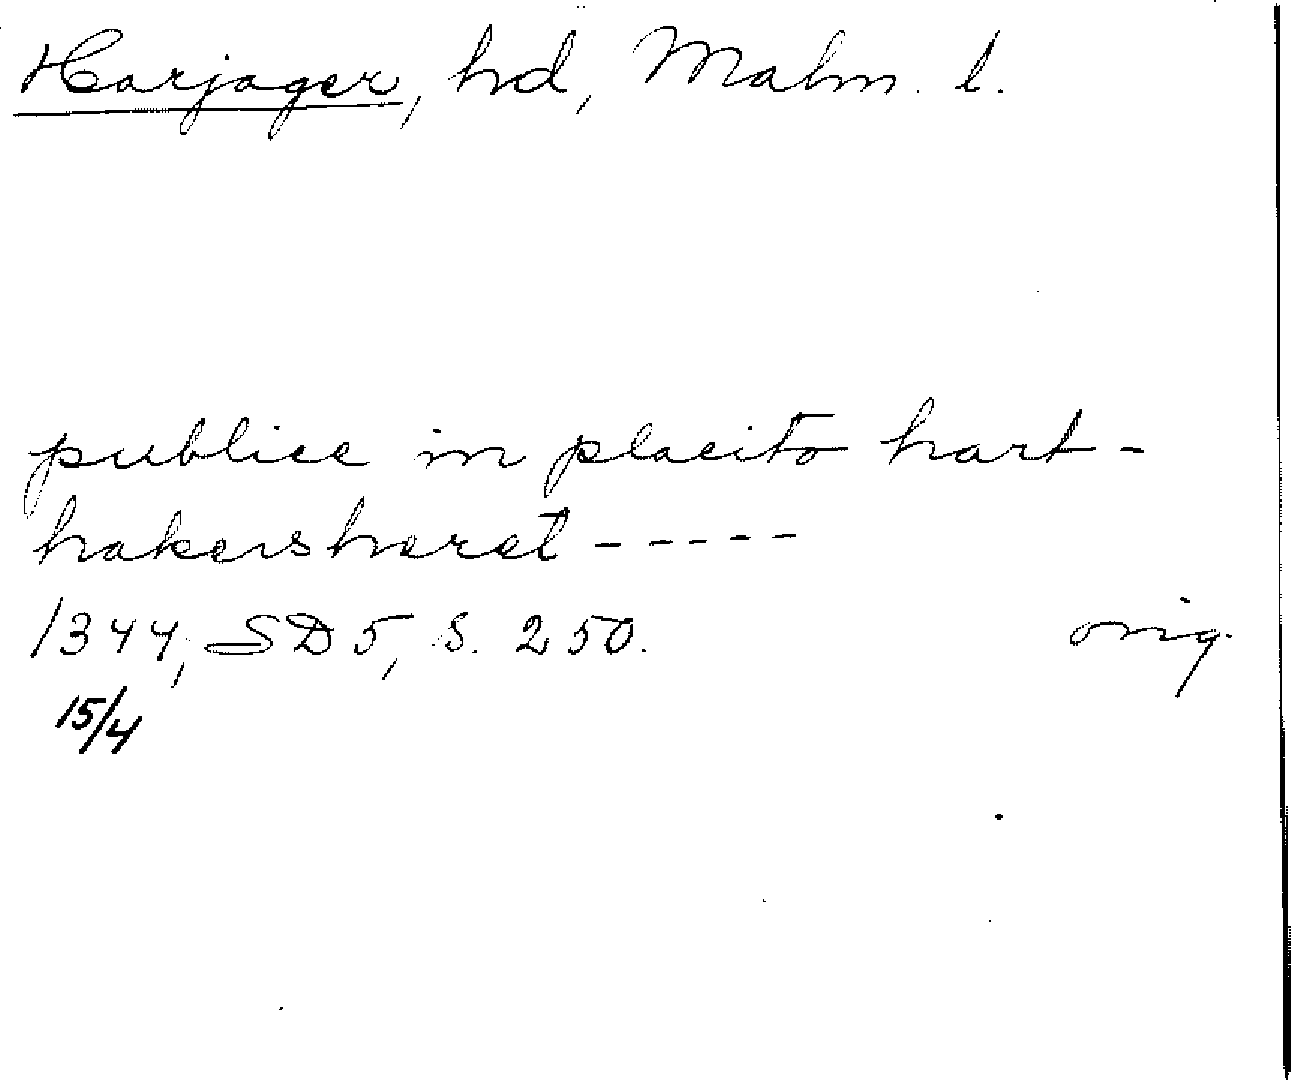 Harjager, hd, Malm. l.
publice in placito hart-
hakersheret -----
1344, SD 5, S. 250. orig.
15/4